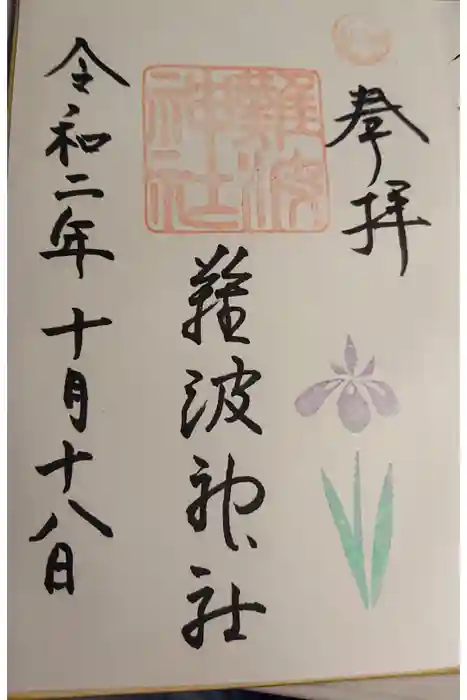 奉拝
難波神社
難波神社
令和二年十月十八日